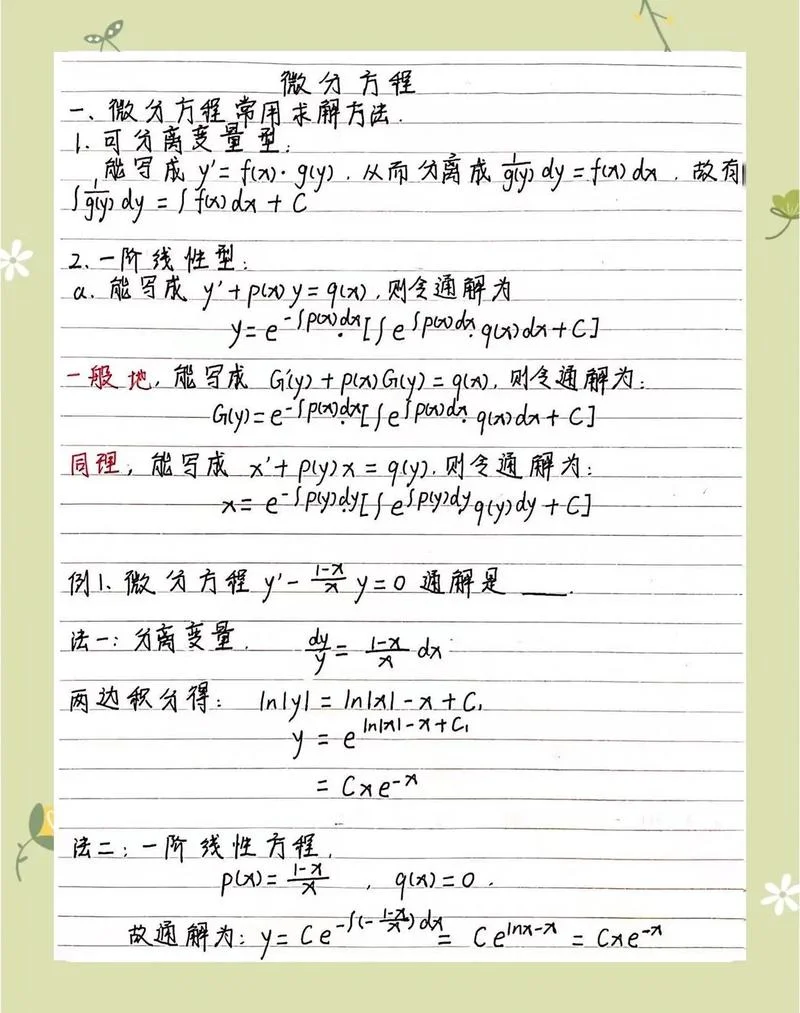 微分方程
一、微分方程常用求解方法.
1. 可分离变量型:
能写成 y' = f(x)·g(y), 从而分离成 1/g(y) dy = f(x) dx, 故有
∫ 1/g(y) dy = ∫ f(x) dx + C
2. 一阶线性型:
a. 能写成 y' + p(x) y = q(x), 则令通解为
y = e^{-∫p(x)dx}·[∫ e^{∫p(x)dx}·q(x)dx + C]
一般地, 能写成 G'(y) + p(x)G(y) = q(x), 则令通解为:
G(y) = e^{-∫p(x)dx}·[∫ e^{∫p(x)dx}·q(x)dx + C]
同理, 能写成 x' + p(y)x = q(y), 则令通解为:
x = e^{-∫p(y)dy}·[∫ e^{∫p(y)dy}·q(y)dy + C]
例1. 微分方程 y' - (1-x)/x y = 0 通解是 ___.
法一: 分离变量, dy/y = (1-x)/x dx
两边积分得: ln|y| = ln|x| - x + C₁
y = e^{ln|x| - x + C₁}
= Cxe^{-x}
法二: 一阶线性方程,
p(x) = (1-x)/x , q(x) = 0.
故通解为: y = Ce^{-∫(-(1-x)/x)dx} = Ce^{lnx-x} = Cxe^{-x}